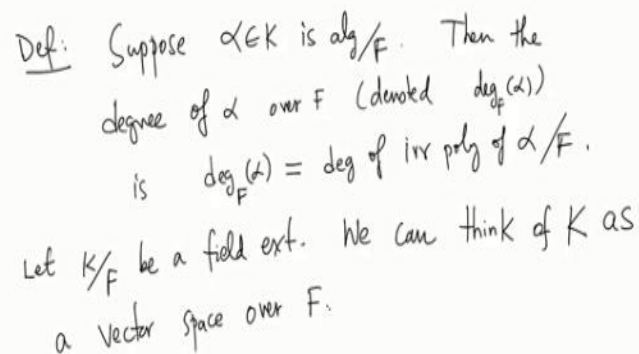 Def: Suppose α∈K is alg/F. Then the
degree of α over F (denoted deg_F(α))
is deg_F(α) = deg of irr poly of α/F.
Let K/F be a field ext. We can think of K as
a vector space over F.